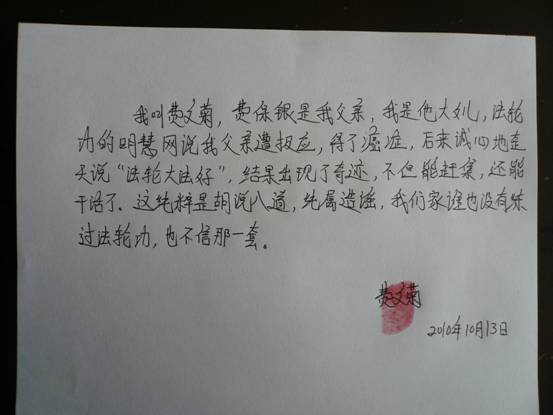 我叫费文菊，费保银是我父亲，我是他大儿，法轮
功的明慧网说我父亲遭报应，得了癌症，后来诚心地每
天说“法轮大法好”，结果出现了奇迹，不但能赶集，还能
干活了．这纯粹是胡说八道，纯属造谣，我们家谁也没有练
过法轮功，也不信那一套。
费文菊
2010年10月13日